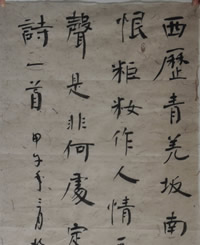 西歷青羌坂南
恨粔籹作人情
聲是非何處定
詩一首 甲午年三月